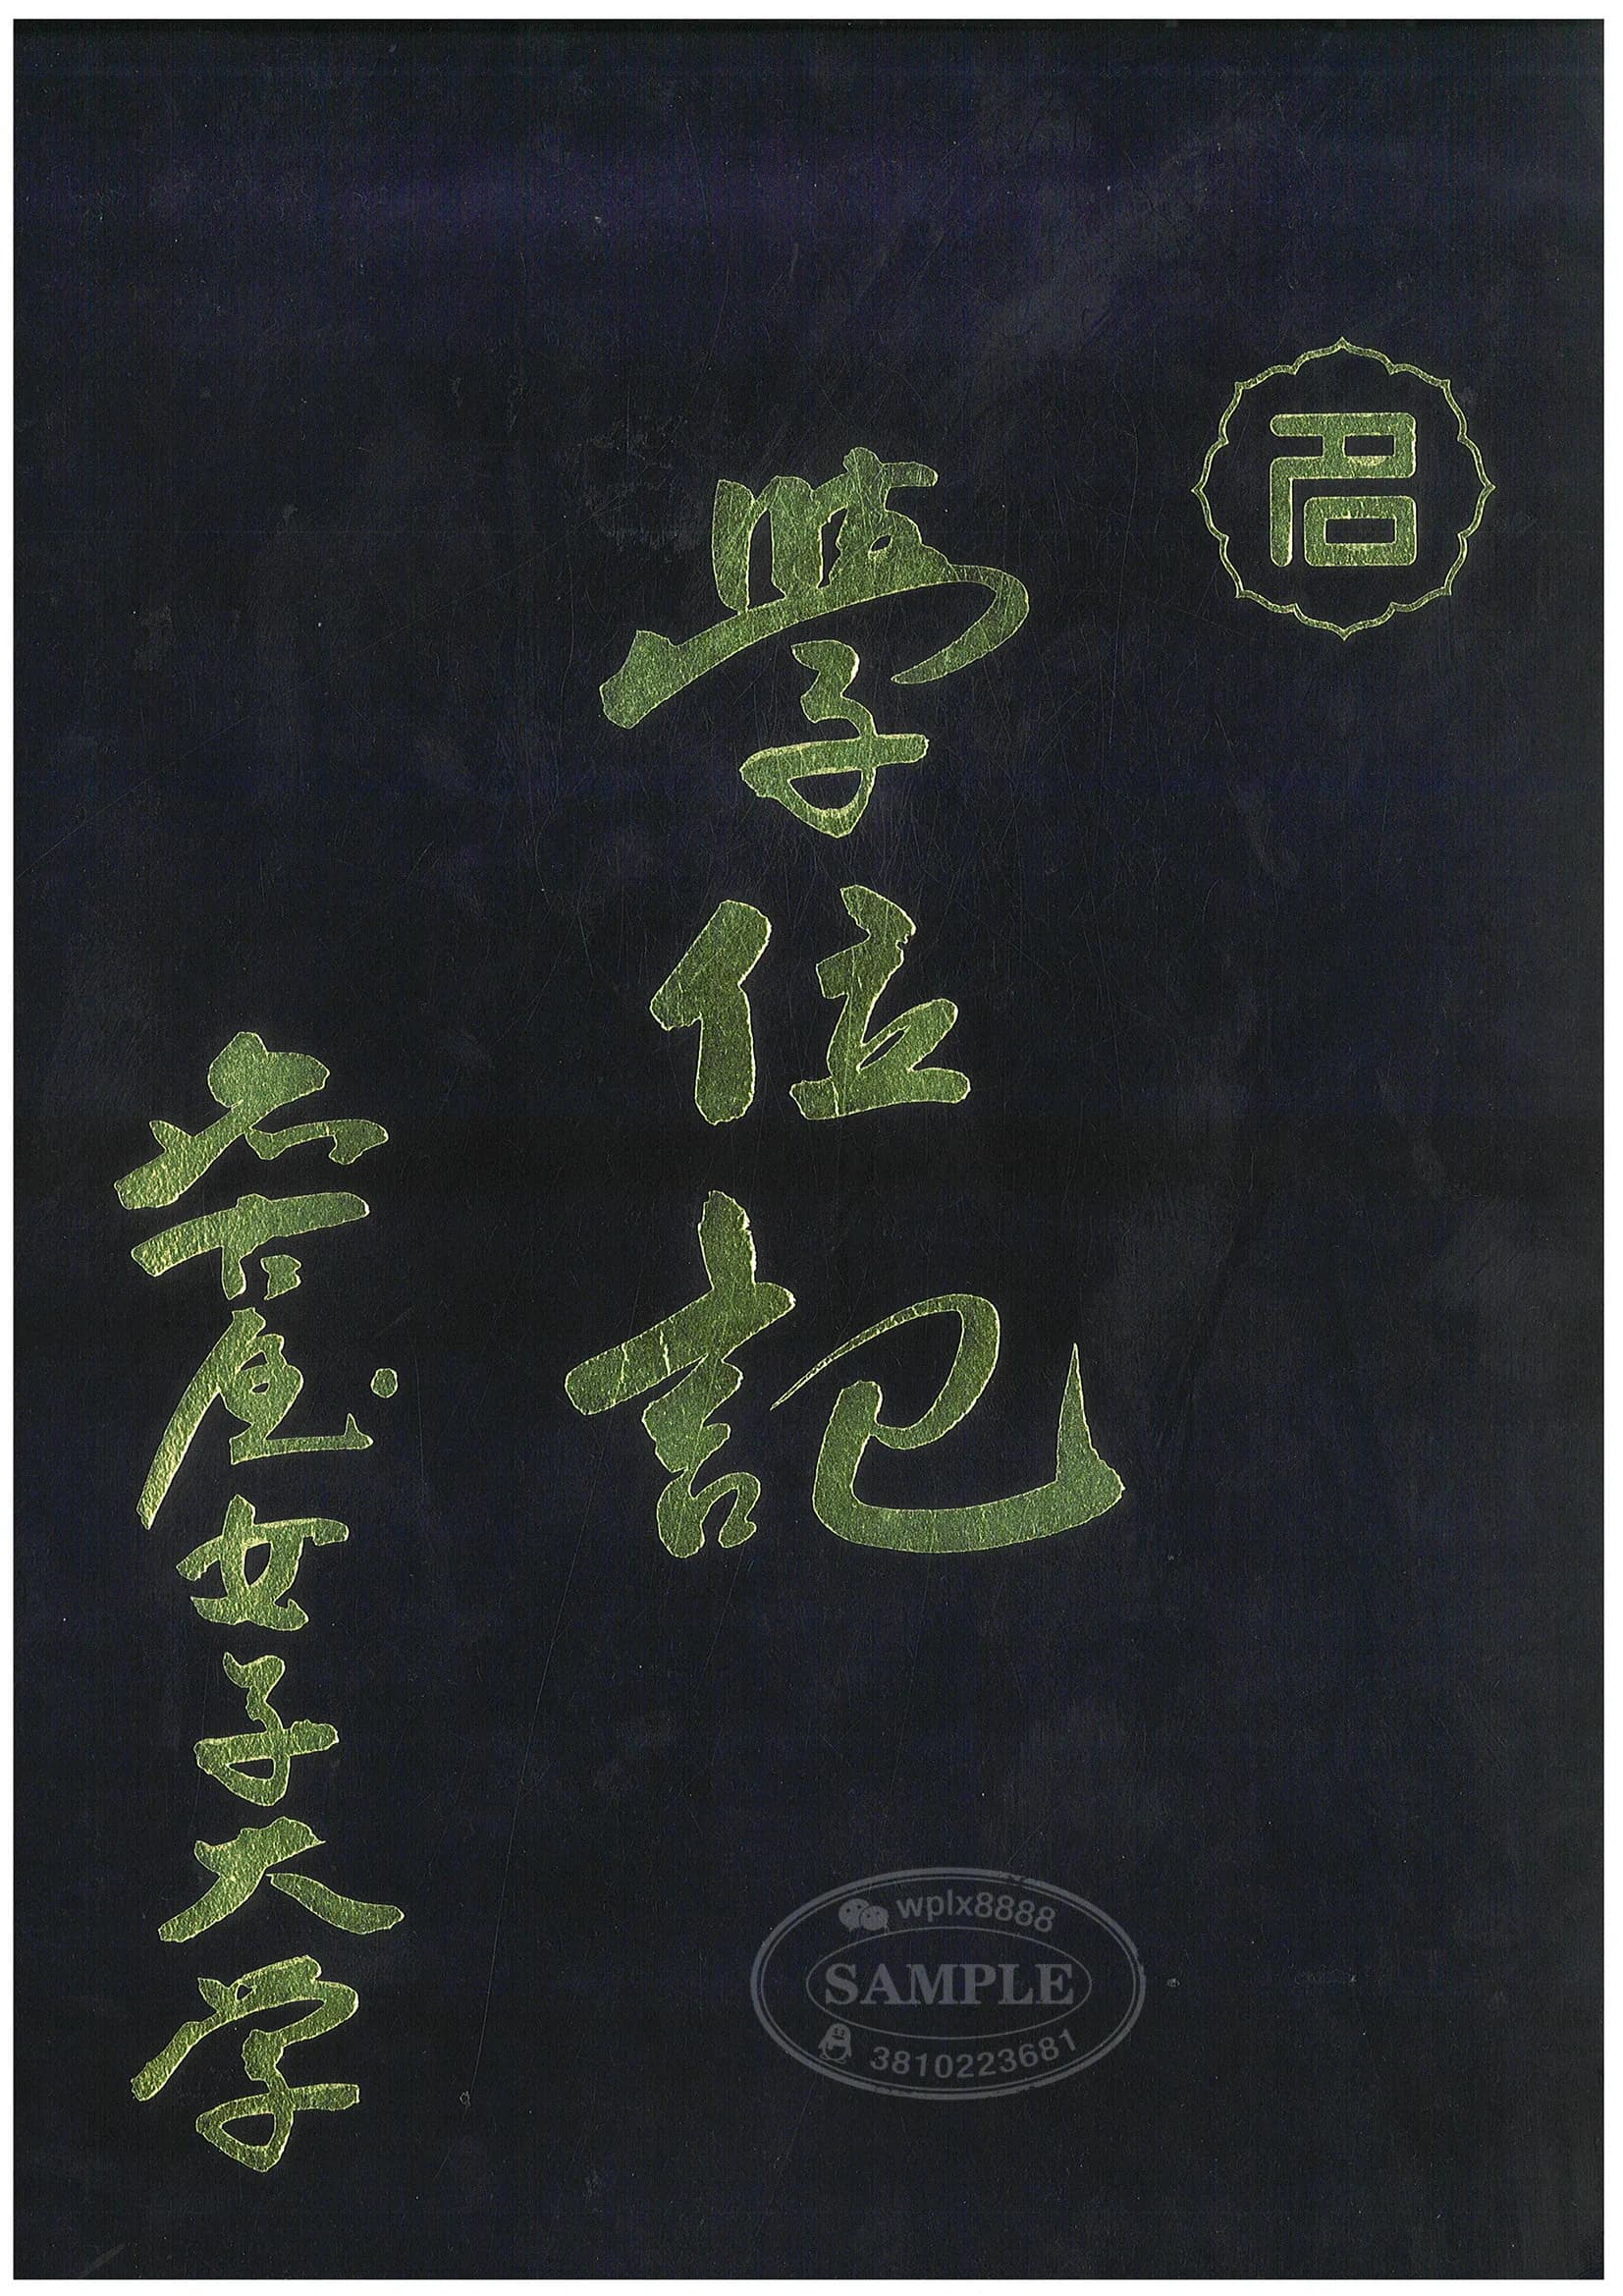 名
學位記
名古屋女子大学
wplx8888
SAMPLE
3810223681